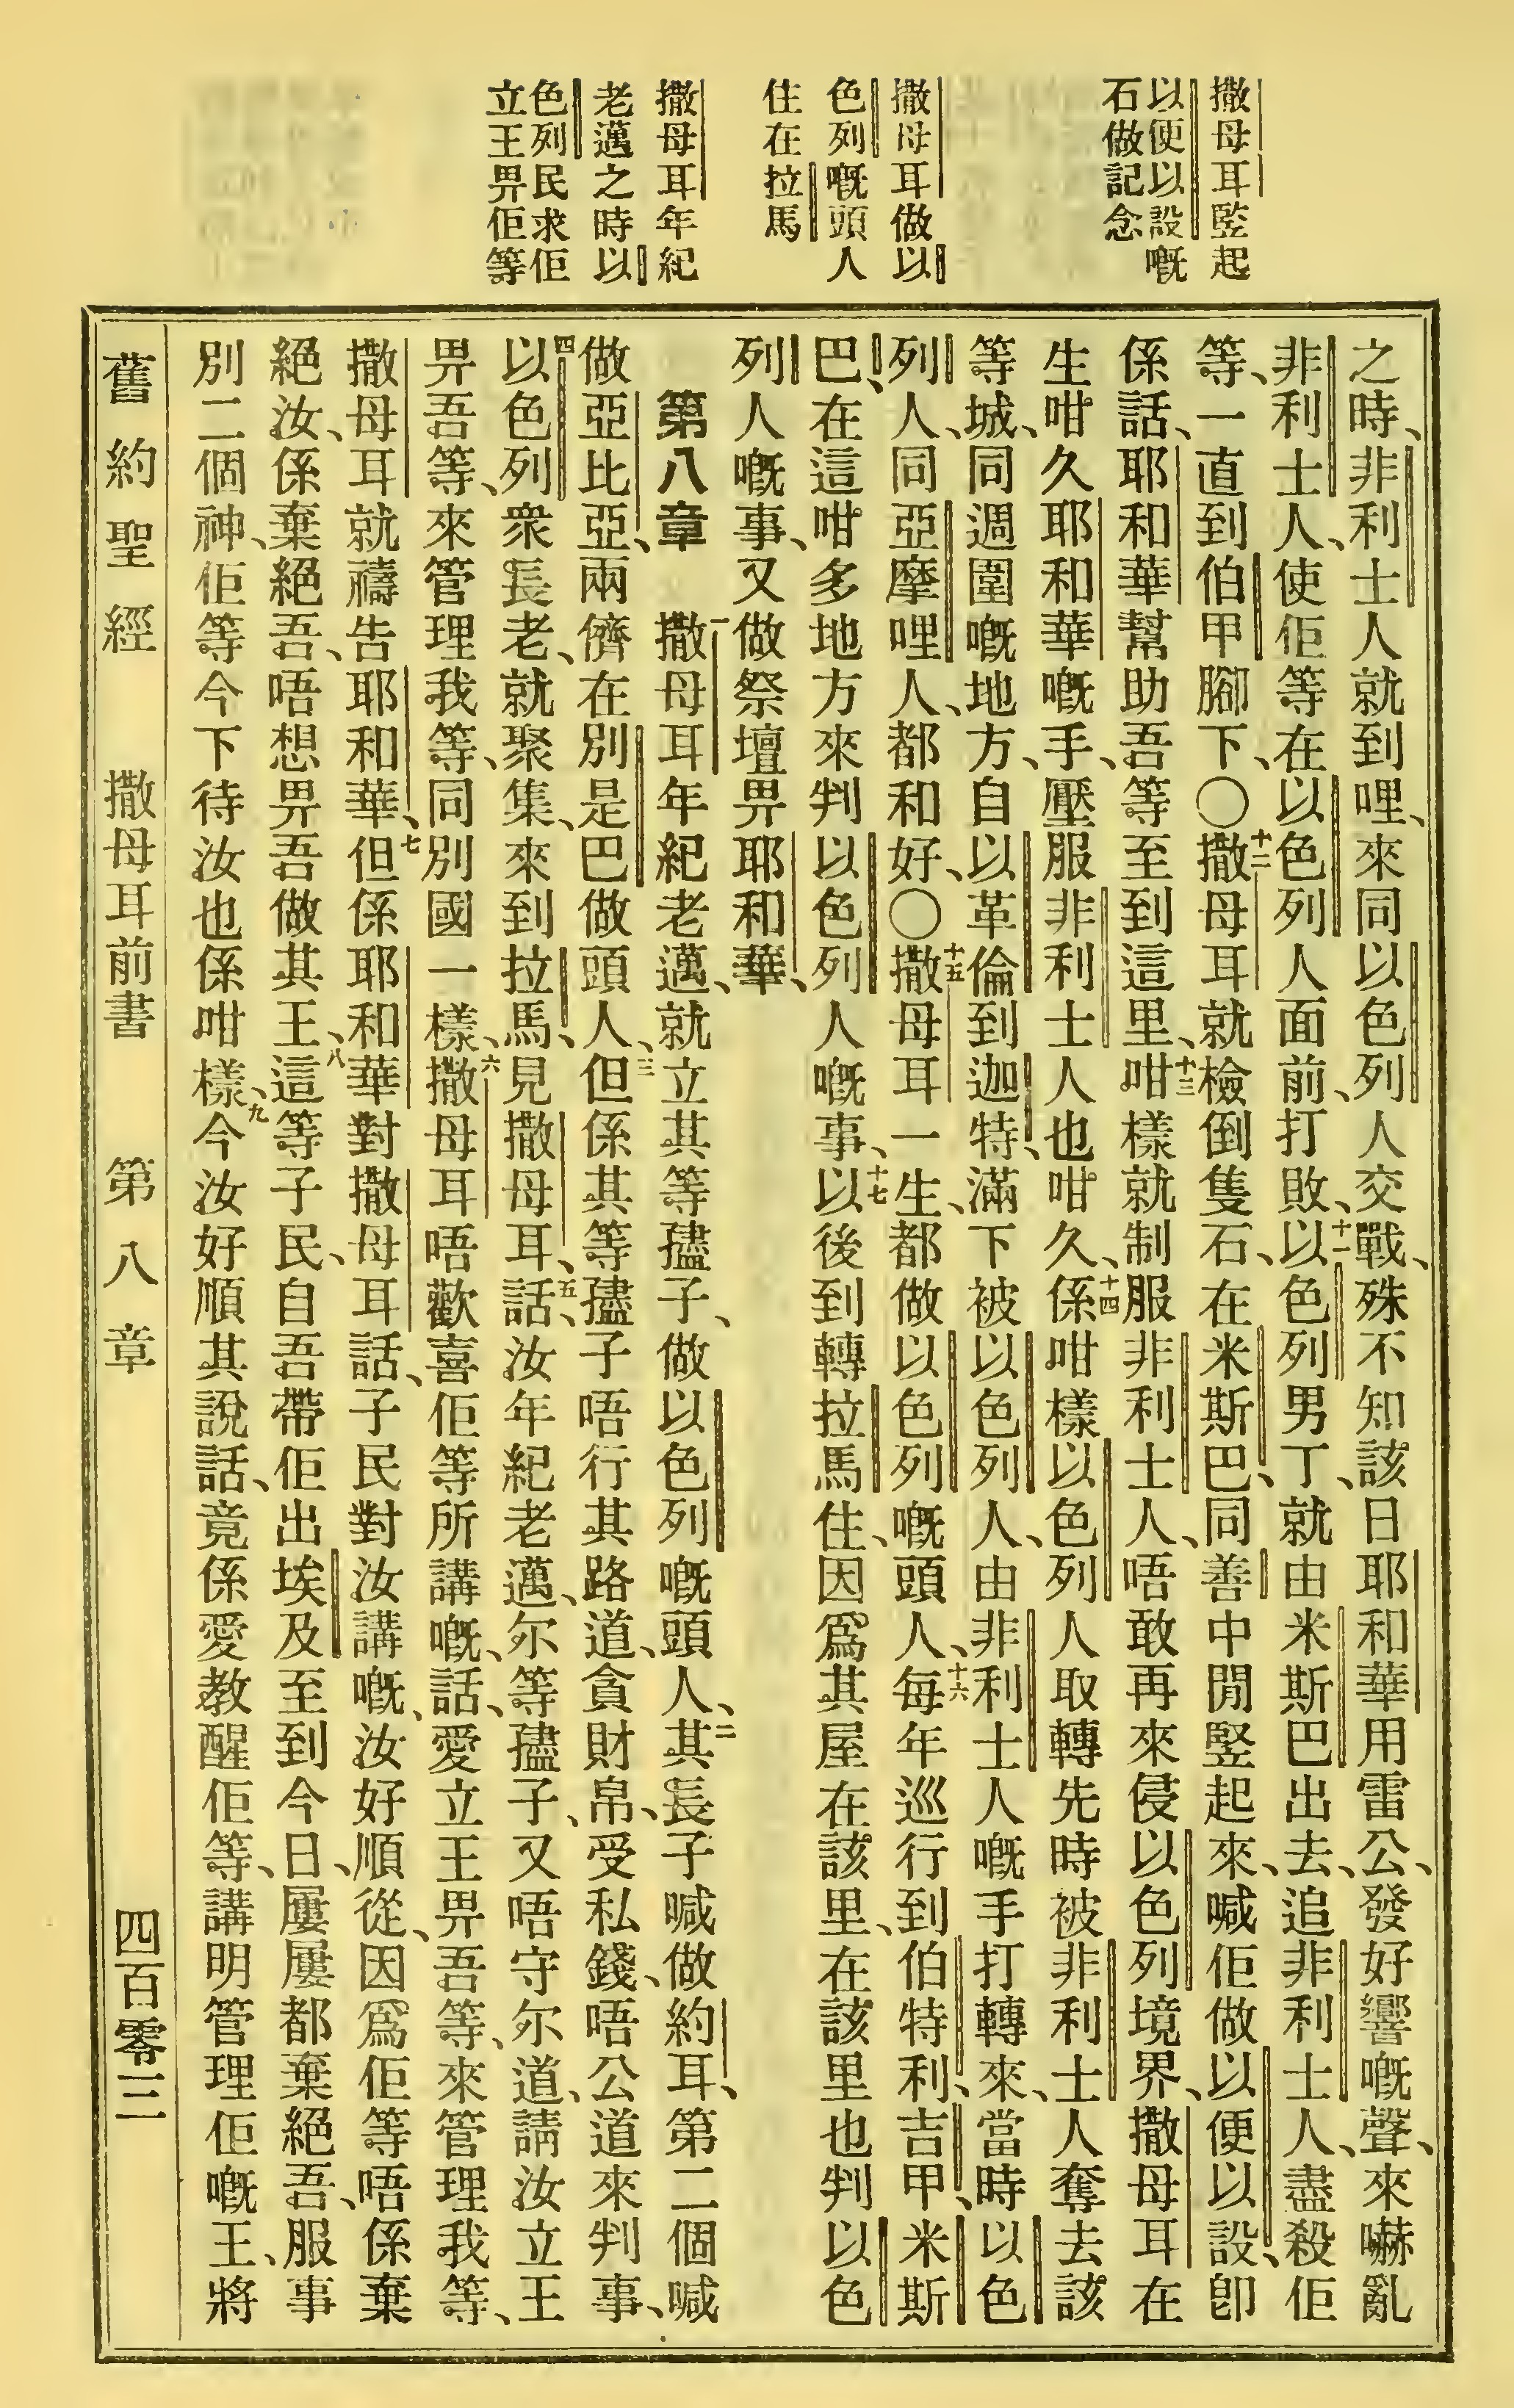 撒母耳竪起
以便以設嘅
石做記念
撒母耳做以
色列嘅頭人
住在拉馬
撒母耳年紀
老邁之時以
色列民求佢
立王畀佢等
之時、非利士人就到哩、來同以色列人交戰、殊不知該日耶和華用雷公、發好響嘅聲、來嚇亂
非利士人、使佢等在以色列人面前、打敗、十一以色列男丁、就由米斯巴出去、追非利士人、盡殺佢
等、一直到伯甲腳下、〇十二撒母耳就檢倒隻石、在米斯巴、同善中間竪起來、喊佢做以便以設、卽
係話、耶和華幫助吾等、至到這里、十三咁樣就制服非利士人、唔敢再來侵以色列境界、撒母耳在
生咁久耶和華嘅手、壓服非利士人也咁久、十四係咁樣以色列人取轉先時被非利士人奪去該
等城、同週圍嘅地方、自以革倫到迦特、滿下被以色列人、由非利士人嘅手打轉來、當時以色
列人、同亞摩哩人、都和好、〇十五撒母耳一生、都做以色列嘅頭人、十六每年巡行到伯特利、吉甲、米斯
巴、在這咁多地方來判以色列人嘅事、十七以後到轉拉馬住、因爲其屋在該里、在該里也判以色
列人嘅事、又做祭壇畀耶和華、
第八章 一撒母耳年紀老邁、就立其等孻子、做以色列嘅頭人、二其長子喊做約耳、第二個喊
做亞比亞、兩儕在別是巴做頭人、三但係其等孻子唔行其路道、貪財帛、受私錢、唔公道來判事、
四以色列衆長老、就聚集、來到拉馬、見撒母耳、五話、汝年紀老邁、尔等孻子、又唔守尔道、請汝立王
畀吾等、來管理我等、同別國一樣、六撒母耳唔歡喜佢等所講嘅、話、愛立王畀吾等、來管理我等、
撒母耳就禱告耶和華、七但係耶和華對撒母耳話、子民對汝講嘅、汝好順從、因爲佢等唔係棄
絕汝、係棄絕吾、唔想畀吾做其王、八這等子民、自吾帶佢出埃及至到今日、屢屢都棄絕吾、服事
別二個神、佢等今下待汝也係咁樣、九今汝好順其說話、竟係愛教醒佢等、講明管理佢嘅王、將
舊約聖經 撒母耳前書 第八章 四百零三